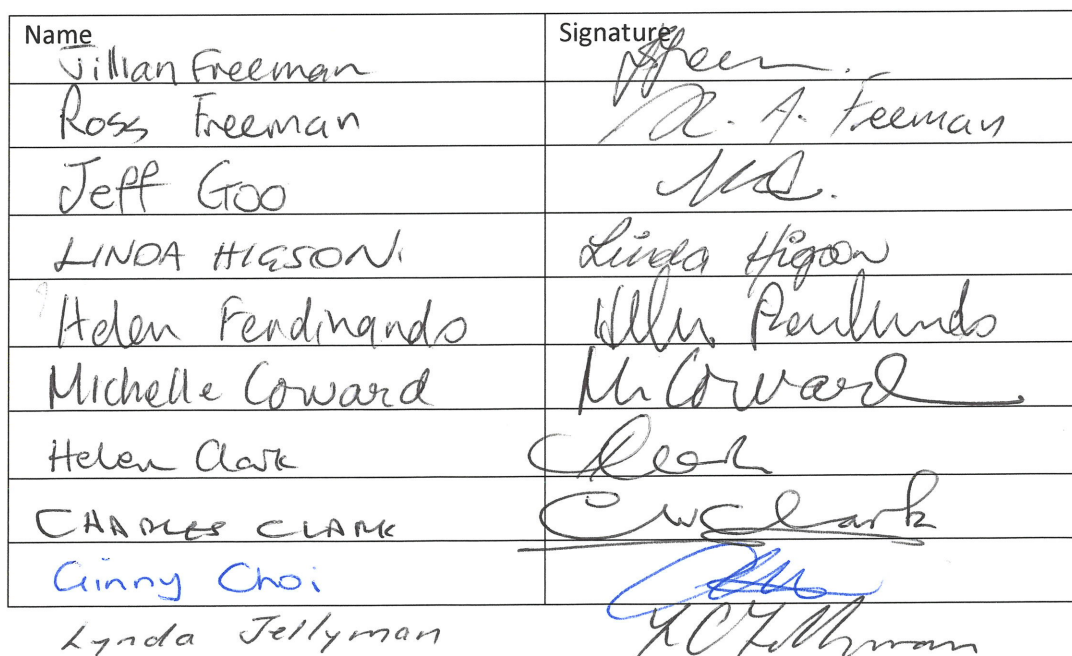 Name Signature
Jillian Freeman
Ross Freeman R. A. Freeman
Jeff Goo
LINDA HIGSON. Linda Higson
Helen Ferdinando
Michelle Coward M Coward
Helen Clark
CHARLES CLARK CWClark
Ginny Choi
Lynda Jellyman LCJellyman